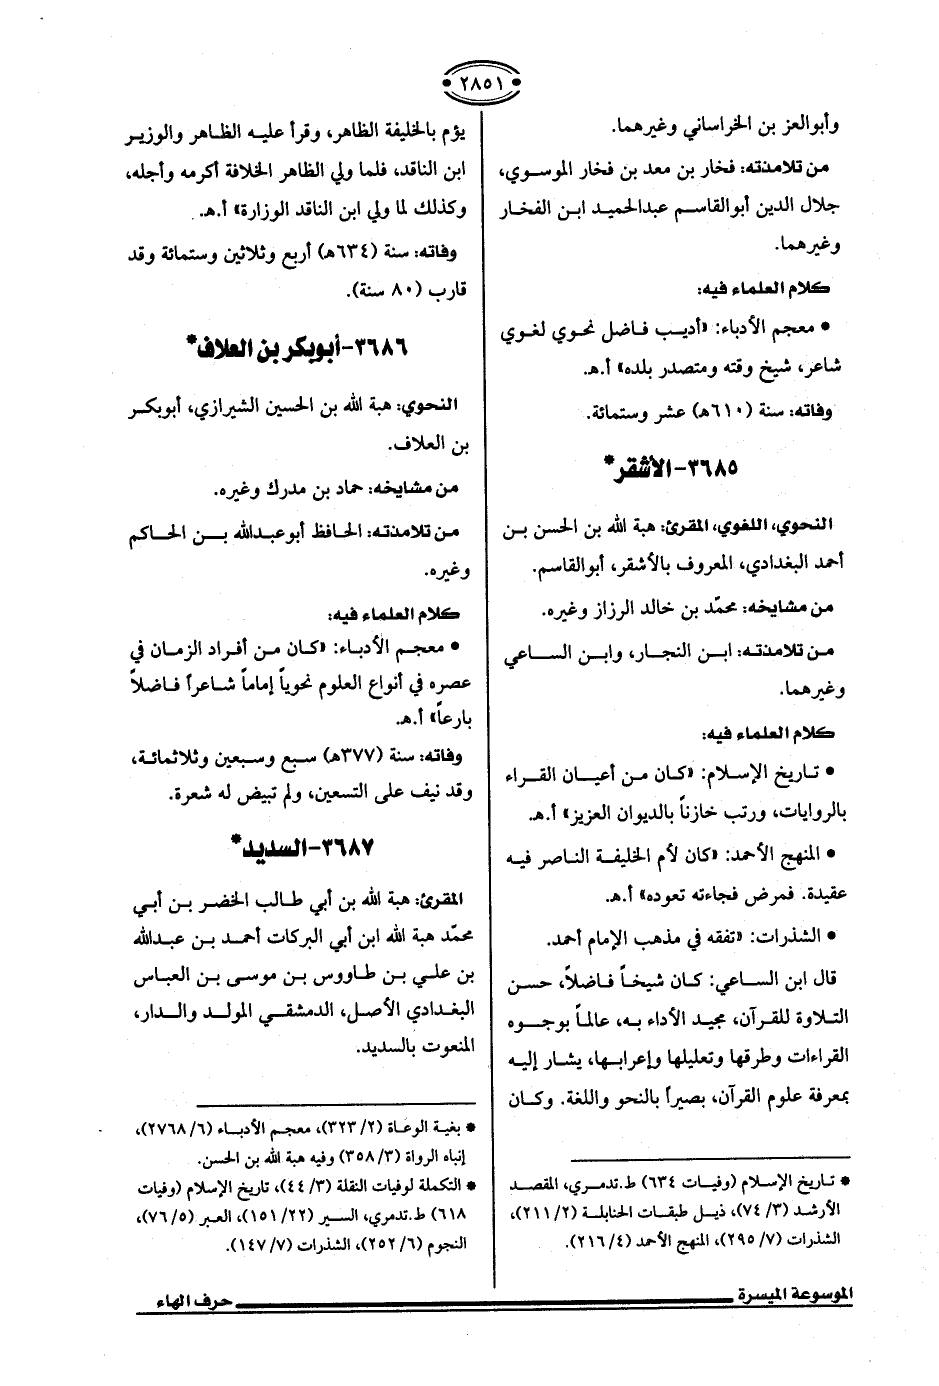 ٢٨٥١
وأبوالعز بن الخراساني وغيرهما.
من تلامذته: فخار بن معد بن فخار الموسوي،
جلال الدين أبوالقاسم عبدالحميد ابن الفخار
وغيرهما.
كلام العلماء فيه:
• معجم الأدباء: «أديب فاضل نحوي لغوي
شاعر، شيخ وقته ومتصدر بلده» أ.هـ.
وفاته: سنة (٦١٠هـ) عشر وستمائة.
٣٦٨٥-الأشقر*
النحوي، اللغوي، المقرئ: هبة الله بن الحسن بن
أحمد البغدادي، المعروف بالأشقر، أبوالقاسم.
من مشايخه: محمّد بن خالد الرزاز وغيره.
من تلامذته: ابن النجار، وابن الساعي
وغيرهما.
كلام العلماء فيه:
• تاريخ الإسلام: «كان من أعيان القراء
بالروايات، ورتب خازناً بالديوان العزيز» أ.هـ.
• المنهج الأحمد: «كان لأم الخليفة الناصر فيه
عقيدة. فمرض فجاءته تعوده» أ.هـ.
• الشذرات: «تفقه في مذهب الإمام أحمد.
قال ابن الساعي: كان شيخاً فاضلاً، حسن
التلاوة للقرآن، مجيد الأداء به، عالماً بوجوه
القراءات وطرقها وتعليلها وإعرابها، يشار إليه
بمعرفة علوم القرآن، بصيراً بالنحو واللغة. وكان
* تاريخ الإسلام (وفيات ٦٣٤) ط.تدمري، المقصد
الأرشد (٣/ ٧٤)، ذيل طبقات الحنابلة (٢/ ٢١١)،
الشذرات (٧/ ٢٩٥)، المنهج الأحمد (٤/ ٢١٦).
يؤم بالخليفة الظاهر، وقرأ عليه الظاهر والوزير
ابن الناقد، فلما ولي الظاهر الخلافة أكرمه وأجله،
وكذلك لما ولي ابن الناقد الوزارة» أ.هـ.
وفاته: سنة (٦٣٤هـ) أربع وثلاثين وستمائة وقد
قارب (٨٠ سنة).
٣٦٨٦-أبوبكر بن العلاف*
النحوي: هبة الله بن الحسين الشيرازي، أبوبكر
بن العلاف.
من مشايخه: حماد بن مدرك وغيره.
من تلامذته: الحافظ أبوعبدالله بن الحاكم
وغيره.
كلام العلماء فيه:
• معجم الأدباء: «كان من أفراد الزمان في
عصره في أنواع العلوم نحوياً إماماً شاعراً فاضلاً
بارعاً» أ.هـ.
وفاته: سنة (٣٧٧هـ) سبع وسبعين وثلاثمائة،
وقد نيف على التسعين، ولم تبيض له شعرة.
٣٦٨٧-السديد*
المقرئ: هبة الله بن أبي طالب الخضر بن أبي
محمّد هبة الله ابن أبي البركات أحمد بن عبدالله
بن علي بن طاووس بن موسى بن العباس
البغدادي الأصل، الدمشقي المولد والدار،
المنعوت بالسديد.
* بغية الوعاة (٢/ ٣٢٣)، معجم الأدباء (٦/ ٢٧٦٨)،
إنباه الرواة (٣/ ٣٥٨) وفيه هبة الله بن الحسن.
* التكملة لوفيات النقلة (٣/ ٤٤)، تاريخ الإسلام (وفيات
٦١٨) ط.تدمري، السير (٢٢/ ١٥١)، العبر (٥/ ٧٦)،
النجوم (٦/ ٢٥٢)، الشذرات (٧/ ١٤٧).
الموسوعة الميسرة
حرف الهاء